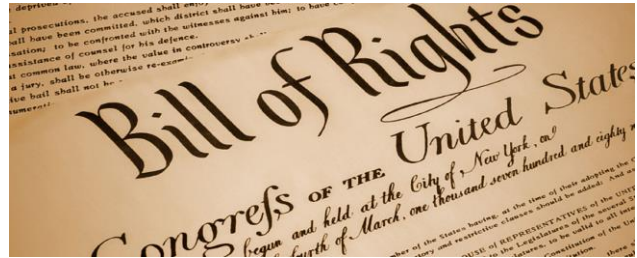 deprived
al prosecutions, the accused shall enjoy
all have been committed, which district shall have
sation; to be confronted with the witnesses against him; to have
assistance of counsel for his defence.
t common law, where the value in controversy
a jury, shall be otherwise re-exam
ive bail shall not be
numerati
Bill of Rights
Congreſs OF THE United States
begun and held at the City of New York, on
ourth of March, one thousand seven hundred and eighty
mber of the States having, at the time of their adopting the
tory and restrictive clauses should be added: And as
OUSE of REPRESENTATIVES of the UNI
to the Legislatures of the several
Legislatures, to be valid to all
Constitution of the